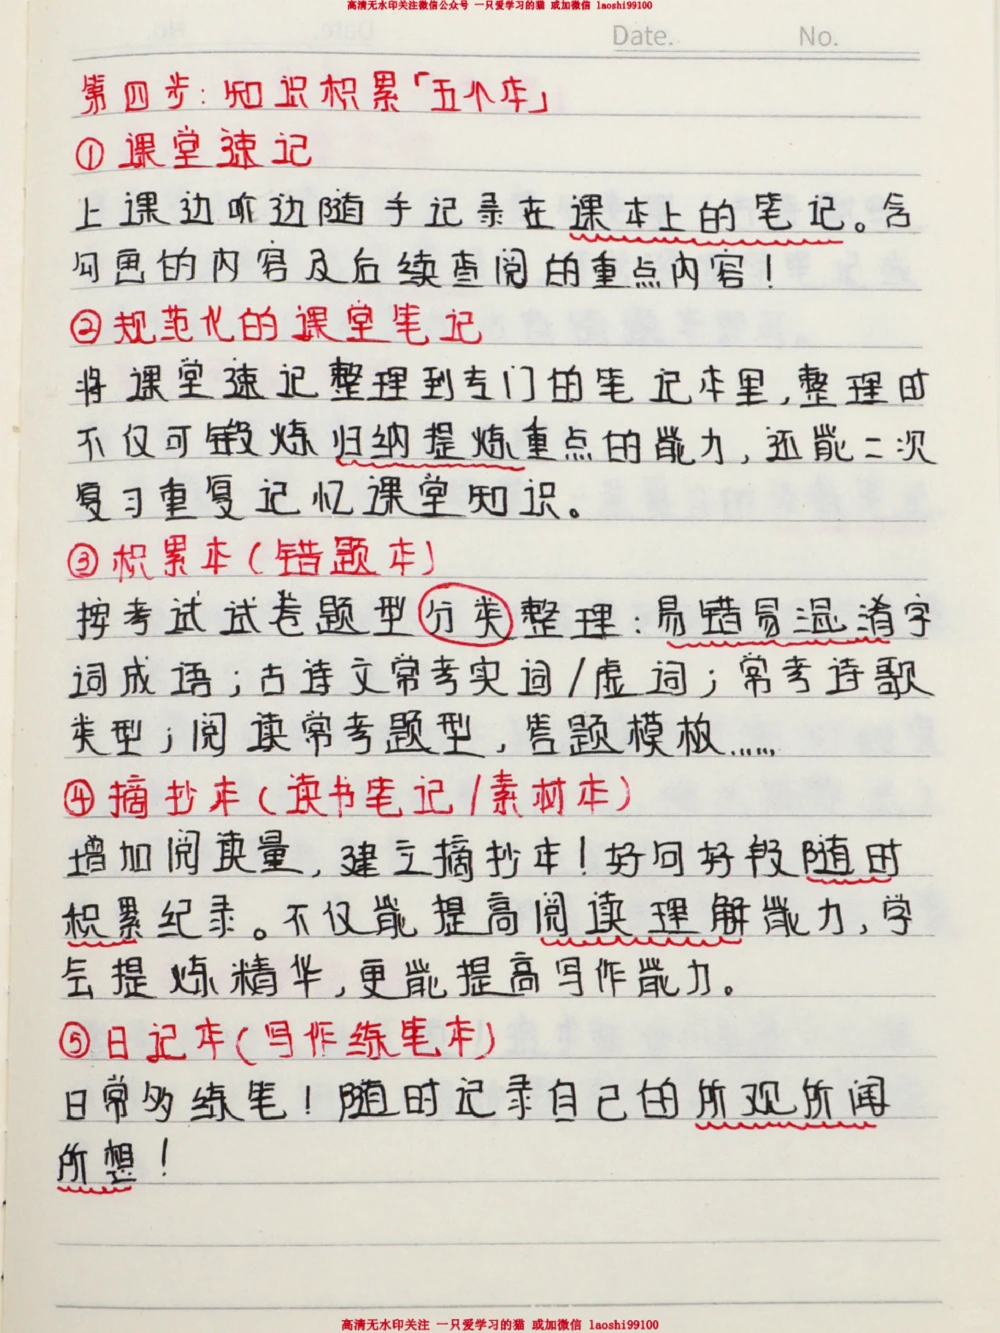 高清无水印关注微信公众号 一只爱学习的猫 或加微信 laoshi99100
Date. No.
第四步：知识积累「五个本」
①课堂速记
上课边听边随手记录在课本上的笔记。含
勾画的内容及后续查阅的重点内容！
②规范化的课堂笔记
将课堂速记整理到专门的笔记本里，整理时
不仅可锻炼归纳提炼重点的能力，还能二次
复习重复记忆课堂知识。
③积累本（错题本）
按考试试卷题型分类整理：易错易混淆字
词成语；古诗文常考实词/虚词；常考诗歌
类型；阅读常考题型，答题模板……
④摘抄本（读书笔记/素材本）
增加阅读量，建立摘抄本！好句好段随时
积累纪录。不仅能提高阅读理解能力，学
会提炼精华，更能提高写作能力。
⑤日记本（写作练笔本）
日常多练笔！随时记录自己的所观所闻
所想！
高清无水印关注 一只爱学习的猫 或加微信 laoshi99100